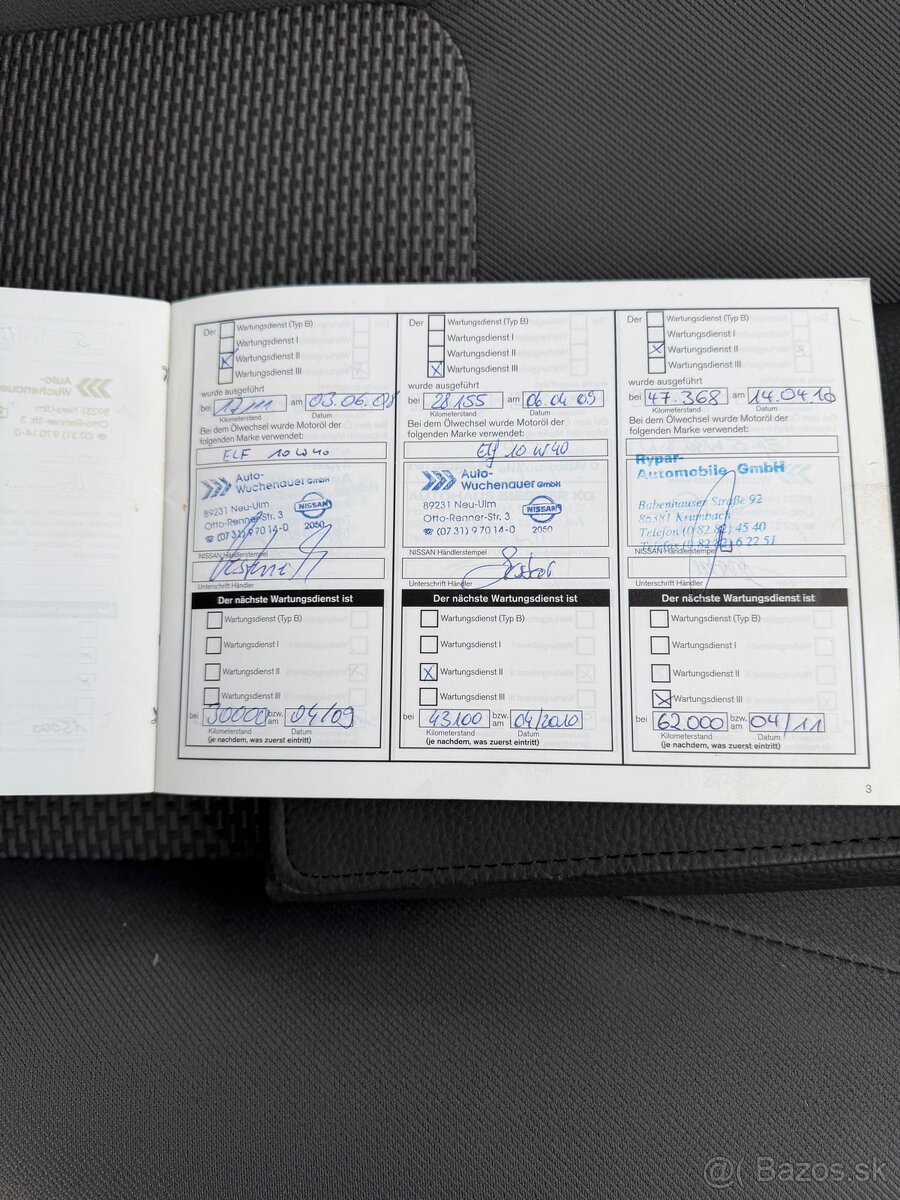 Der Wartungsdienst (Typ B)
Wartungsdienst I
Wartungsdienst II
Wartungsdienst III
wurde ausgeführt
bei am 03.06.08
Kilometerstand Datum
Bei dem Ölwechsel wurde Motoröl der
folgenden Marke verwendet:
ELF 10W40
Auto-
Wuchenauer GmbH
89231 Neu-Ulm
Otto-Renner-Str. 3
☎ (07 31) 9 70 14-0
NISSAN
2050
NISSAN Händlerstempel
Unterschrift Händler
Der nächste Wartungsdienst ist
Wartungsdienst (Typ B)
Wartungsdienst I
Wartungsdienst II
Wartungsdienst III
bei 30000 bzw. am 04/09
Kilometerstand Datum
(je nachdem, was zuerst eintritt)
Der Wartungsdienst (Typ B)
Wartungsdienst I
Wartungsdienst II
Wartungsdienst III
wurde ausgeführt
bei 28155 am 06.04.09
Kilometerstand Datum
Bei dem Ölwechsel wurde Motoröl der
folgenden Marke verwendet:
Elf 10W40
Auto-
Wuchenauer GmbH
89231 Neu-Ulm
Otto-Renner-Str. 3
☎ (07 31) 9 70 14-0
NISSAN
2050
NISSAN Händlerstempel
Unterschrift Händler
Der nächste Wartungsdienst ist
Wartungsdienst (Typ B)
Wartungsdienst I
Wartungsdienst II
Wartungsdienst III
bei 43100 bzw. am 04/2010
Kilometerstand Datum
(je nachdem, was zuerst eintritt)
Der Wartungsdienst (Typ B)
Wartungsdienst I
Wartungsdienst II
Wartungsdienst III
wurde ausgeführt
bei 47.368 am 14.04.10
Kilometerstand Datum
Bei dem Ölwechsel wurde Motoröl der
folgenden Marke verwendet:
Rypar-
Automobile GmbH
Babenhauser Straße 92
86381 Krumbach
Telefon (0 82 82) 45 40
Telefax (0 82 82) 6 22 51
NISSAN Händlerstempel
Unterschrift Händler
Der nächste Wartungsdienst ist
Wartungsdienst (Typ B)
Wartungsdienst I
Wartungsdienst II
Wartungsdienst III
bei 62.000 bzw. am 04/11
Kilometerstand Datum
(je nachdem, was zuerst eintritt)
3
@( Bazos.sk